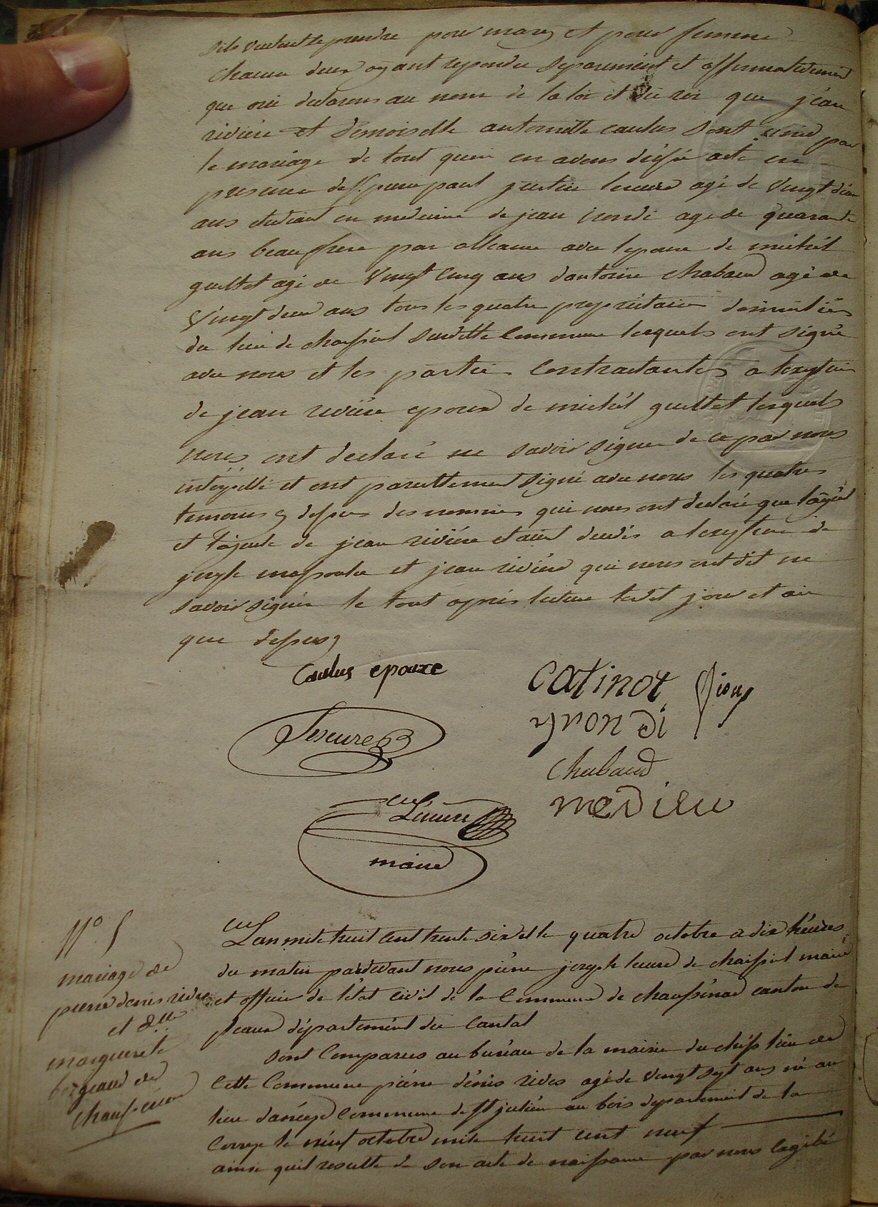 s'ils veulent se prendre pour mary et pour femme
chacun deux ayant repondu separement et affirmativement
que oui declarons au nom de la loi et du roi que jean
riviere et demoiselle antoinette caulus sont unis par
le mariage de tout quoi en avons dressé acte en
presence de pierre paul justin lescure agé de vingt deux
ans etudiant en medecine de jean irondi agé de quarante
ans beau frere par alliance avec lepoux de michél
guillet agé de vingt cinq ans dantoine chabaud agé de
vingt deux ans tous les quatre proprietaires domiciliés
du lieu de chaussinet susditte Commune lesquels ont signé
avec nous et les parties Contractantes a lexeption
de jean riviére epoux de michél guillet lesquels
nous ont declaré ne savoir signer de ce par nous
intérpéllé et ont pareillement signé avec nous les quatres
temoins dessus des nommés qui nous ont declaré que l'ayeul
et l'ayeule de jean riviére etaient decedés a lexeption de
et jean riviére qui nous ont dit ne
savoir signer le tout aprés lecture ledit jour et an
que dessus
Caulus epouze
catinot
yrondi
Lescure
chabaud
medieu
Lescure
maire
N° 5
mariage de
pierre denis rives
et dlle
marguerite
bergeaud de
chaussenac
Lan mil huit cent trente six et le quatre octobre a dix heures
du matin pardevant nous piérre joseph lescure de chaussinet maire
et officier de létat Civil de la Commune de chaussénac canton de
pleaux département du Cantal
Sont Comparus au bureau de la mairie du chéf lieu de
Cette Commune piérre dénis rives agé de vingt sept ans né au
lieu Commune de St julién au bois departement de la
Correze le neuf octobre mile huit cent neuf
ainsi quil resulte de son acte de naissance par nous